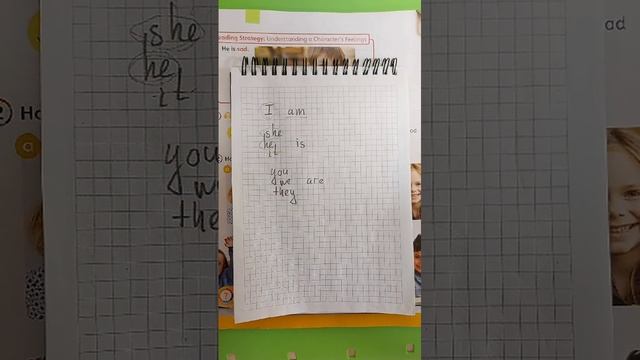 Reading Strategy: Understanding a Character's Feelings
He is sad.
I am
she
he is
it
you
we are
they
she
he
it
you
we
the
ad
Ho
a